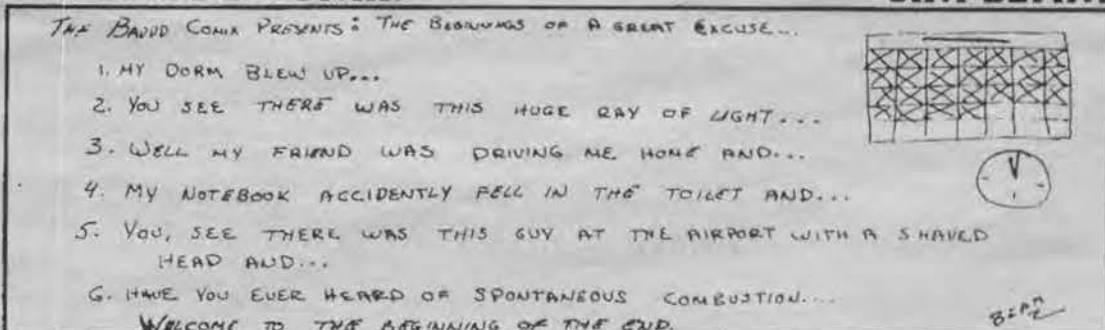 THE BAUDD COMIX PRESENTS: THE BEGINNINGS OF A GREAT EXCUSE...
1. MY DORM BLEW UP...
2. YOU SEE THERE WAS THIS HUGE RAY OF LIGHT....
3. WELL MY FRIEND WAS DRIVING ME HOME AND...
4. MY NOTEBOOK ACCIDENTLY FELL IN THE TOILET AND...
5. YOU, SEE THERE WAS THIS GUY AT THE AIRPORT WITH A SHAVED
HEAD AND...
6. HAVE YOU EVER HEARD OF SPONTANEOUS COMBUSTION....
WELCOME TO THE BEGINNING OF THE END.